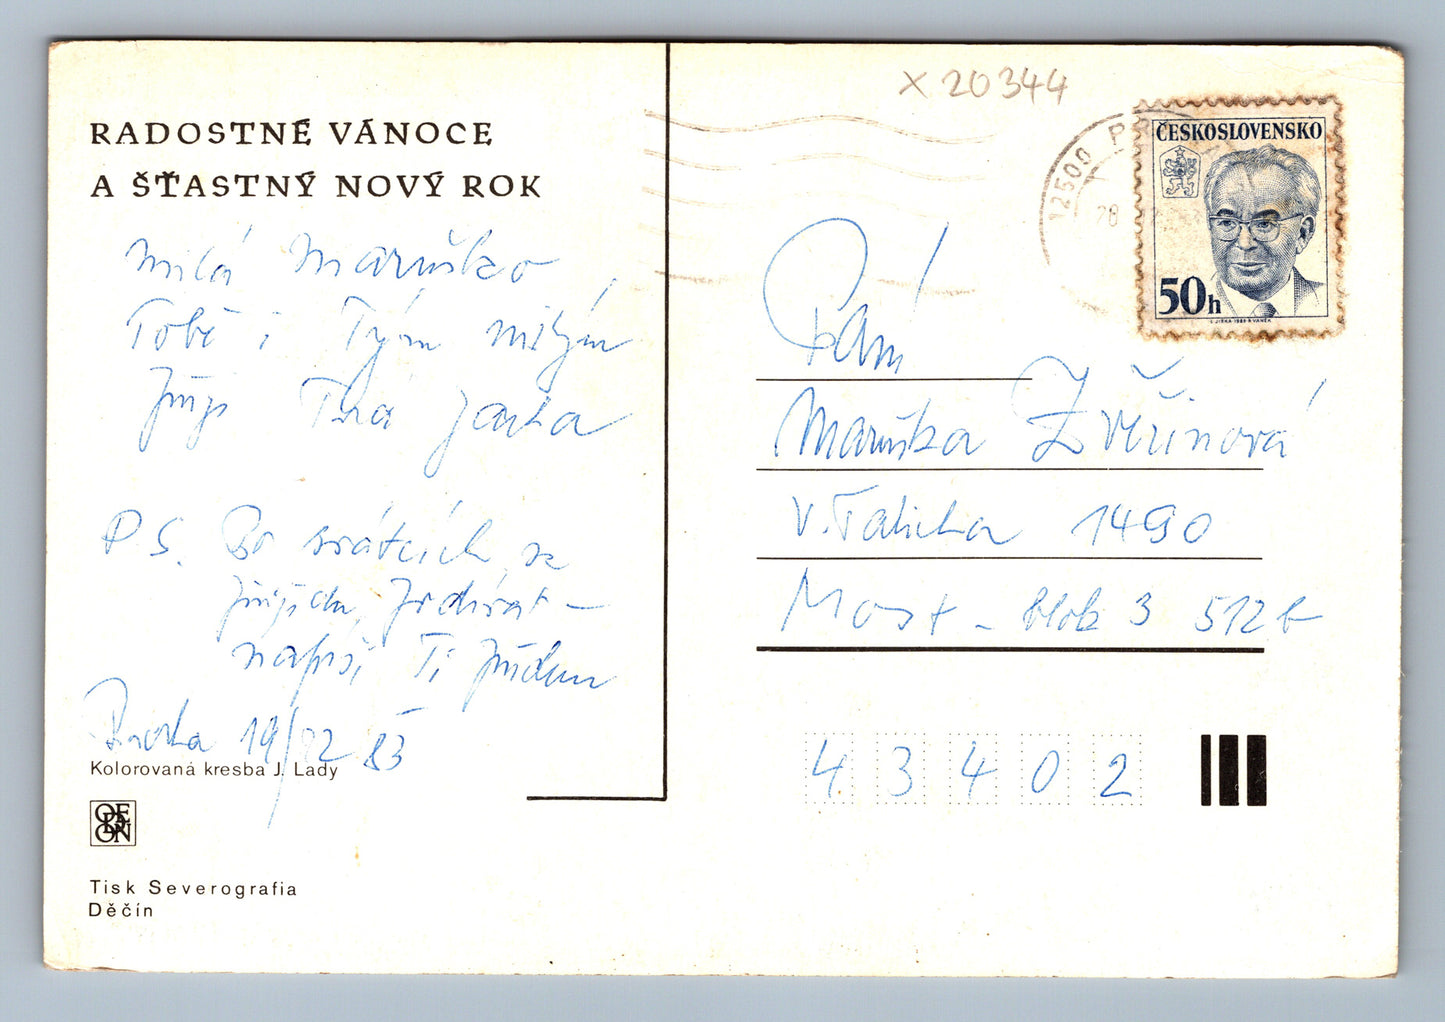 RADOSTNÉ VÁNOCE
A ŠŤASTNÝ NOVÝ ROK
Milá Maruško
Tobě i Tým milým
přeje Tvá Jarka
P.S. Po svátcích se
přijedu podívat –
napíši Ti předem
Praha 19/12 83
Kolorovaná kresba J. Lady
ODEON
Tisk Severografia
Děčín
x 20344
12500 P
28
ČESKOSLOVENSKO
50h
Paní
Maruška Zvěřinová
V. Talicha 1490
Most – blok 3 512b
43402